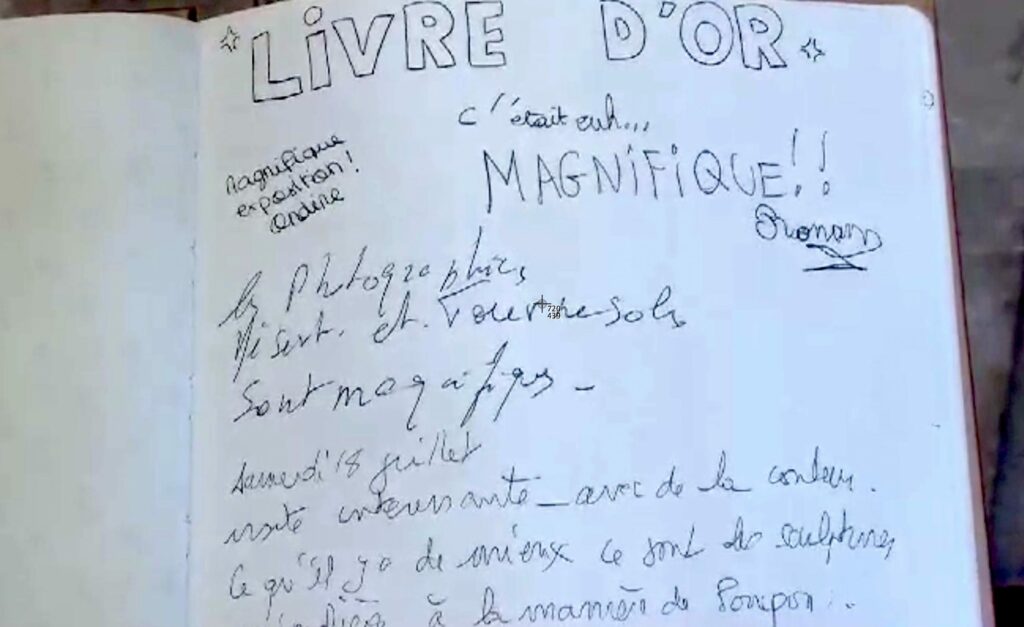 LIVRE D'OR
c'était euh...
MAGNIFIQUE!!
Romans
magnifique
exposition!
Ondine
les Photographies
Désert. et. Tournesols
Sont magnifiques -
Samedi 18 juillet
visite intéressante _ avec de la couleur.
Ce qu'il y a de mieux ce sont des sculptures
à la manière de Pompon...